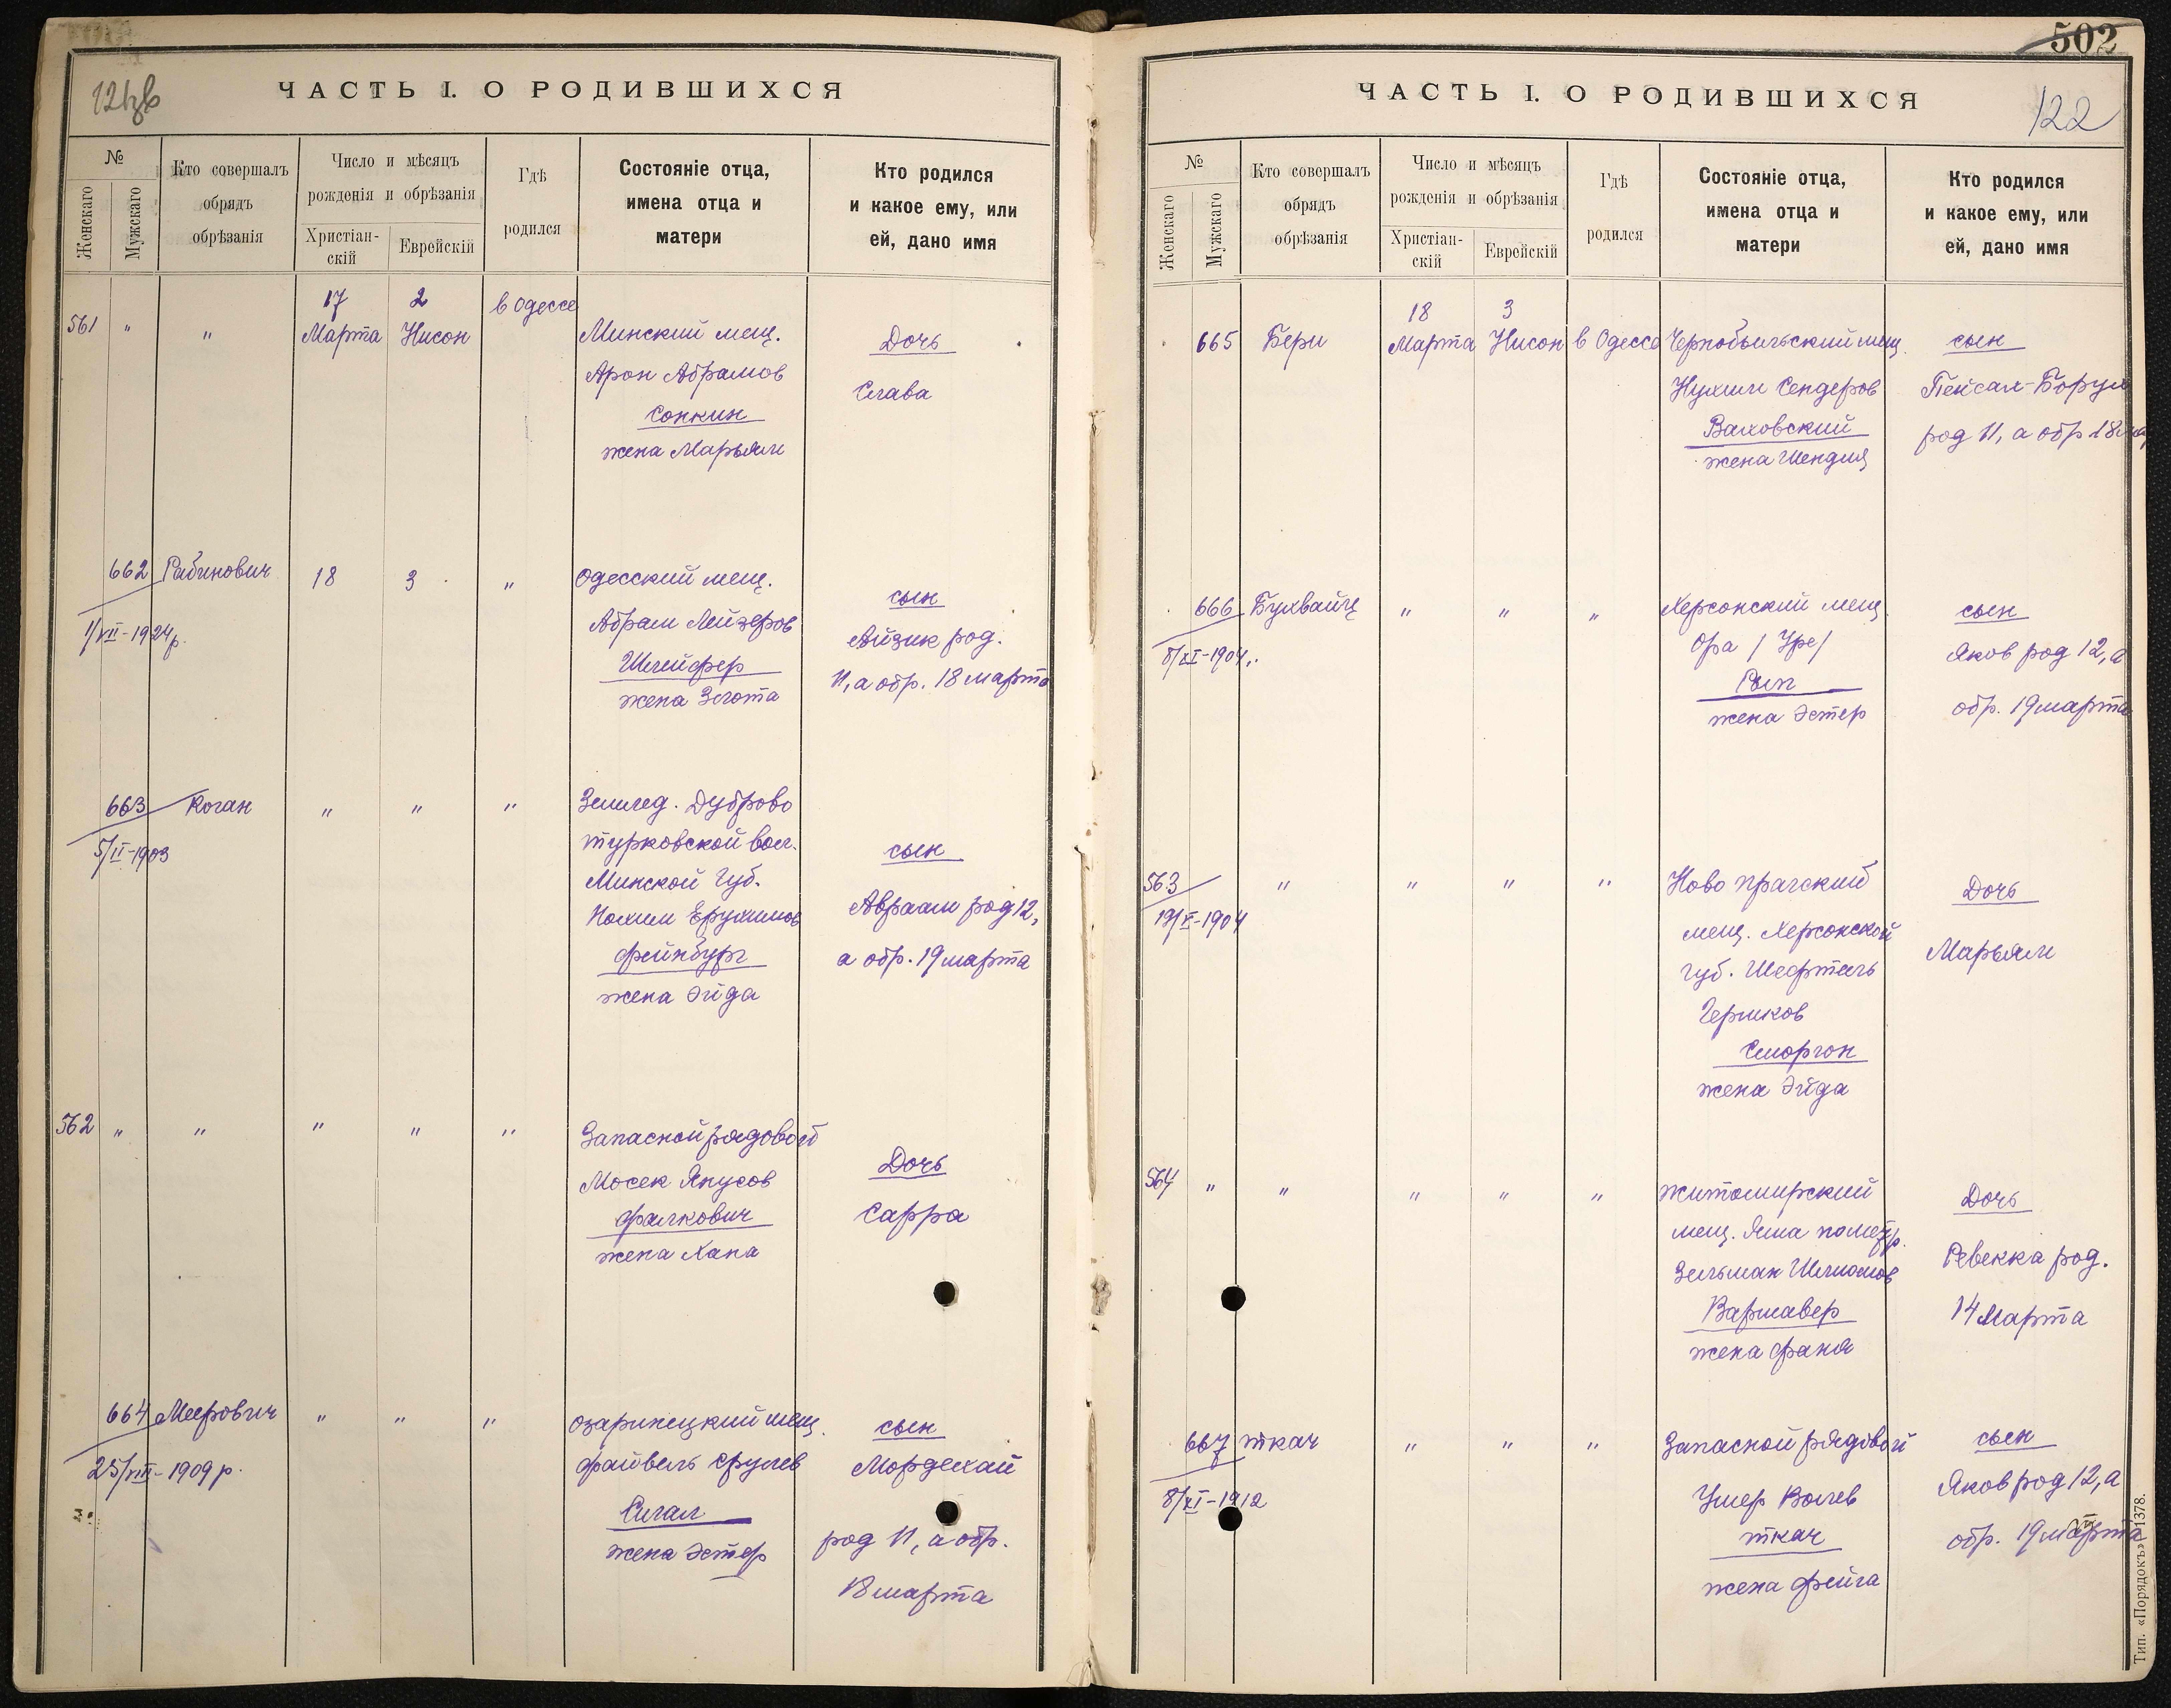 121зв
ЧАСТЬ I. О РОДИВШИХСЯ
№
Женскаго
Мужскаго
Кто совершалъ
обрядъ
обрѣзанія
Число и мѣсяцъ
рожденія и обрѣзанія
Христіан-
скій
Еврейскій
Гдѣ
родился
Состояніе отца,
имена отца и
матери
Кто родился
и какое ему, или
ей, дано имя
561 " " 17 Марта 2 Нисон в Одессе
Минский мещ.
Арон Абрамов
Сонкин
жена Марьям
Дочь
Слава
662 Рабинович 18 3 "
1/VII-1924р.
Одесский мещ.
Абрам Лейзеров
Шлейфер
жена Злота
сын
Айзик род.
11, а обр. 18 марта
663 Коган " " "
5/II-1903
Землед. Дуброво
турковской вол.
Минской Губ.
Нохим Ерухимов
Фейнбург
жена Эйда
сын
Авраам род 12,
а обр. 19 марта
562 " " " " "
Запасной рядовой
Мосек Янусов
Фалкович
жена Хана
Дочь
Сарра
664 Меерович " " "
25/VIII-1909 р.
Озаринецкий мещ.
Файвель Срулев
Сигал
жена Эстер
сын
Мордехай
род 11, а обр.
18 марта
502
122
ЧАСТЬ I. О РОДИВШИХСЯ
№
Женскаго
Мужскаго
Кто совершалъ
обрядъ
обрѣзанія
Число и мѣсяцъ
рожденія и обрѣзанія
Христіан-
скій
Еврейскій
Гдѣ
родился
Состояніе отца,
имена отца и
матери
Кто родился
и какое ему, или
ей, дано имя
665 Бери 18 Марта 3 Нисон в Одессе
Чернобыльский мещ.
Нухим Сендеров
Валовский
жена Шендля
сын
Пейсах-Борух
род 11, а обр 18
666 Бухвайц " " "
8/XI-1904
Херсонский мещ.
Ора /Уре/
Рып
жена Эстер
сын
Яков род 12, а
обр. 19 марта
563 " " " "
19/X-1904
Ново прагский
мещ. Херсонской
губ. Шефтель
Гершков
Сморгон
жена Эйда
Дочь
Марьям
564 " " " " "
Житомирский
мещ.
Зельман Шлиомов
Варшавер
жена Фаня
Дочь
Ревекка род.
14 Марта
667 Ткач " " "
8/XI-1912
Запасной рядовой
Ушер Волев
Ткач
жена Фейга
сын
Яков род 12, а
обр. 19 марта
Тип. «Порядокъ» 1378.